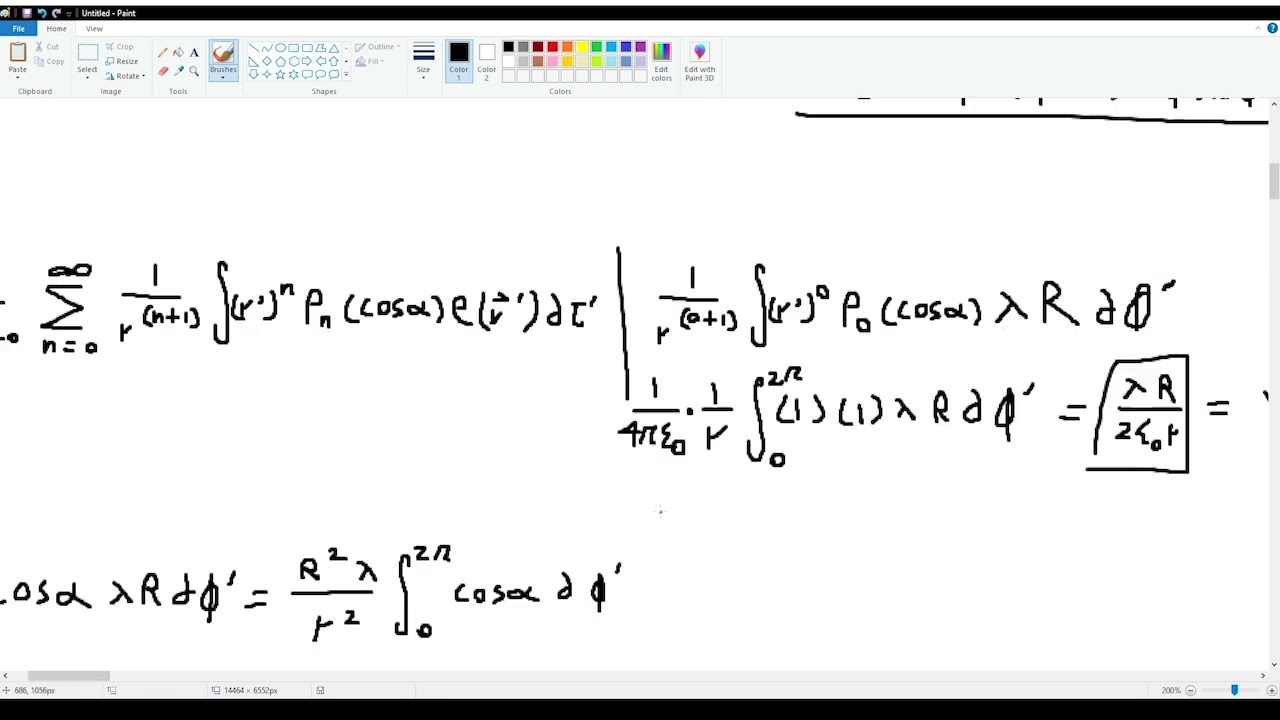 Untitled - Paint
File Home View
Paste Cut Copy Clipboard
Select Crop Resize Rotate Image
Tools
Brushes
Outline Fill Shapes
Size
Color 1 Color 2 Edit colors Edit with Paint 3D Colors
∞ Σ n=0 1/r^(n+1) ∫(r')^n P_n (cosα) ρ(r⃗')dτ' | 1/r^(0+1) ∫(r')^0 P_0 (cosα) λ R dϕ'
1/4πε_0 · 1/r ∫_0^2π (1)(1) λ R dϕ' = λR/2ε_0r =
cosα λR dϕ' = R²λ/r² ∫_0^2π cosα dϕ'
686, 1056px 14464 × 6552px 200%